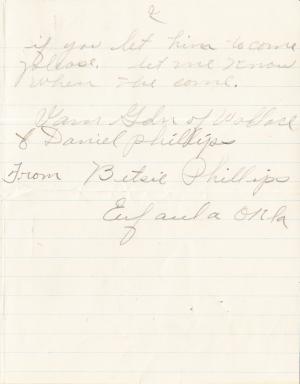 2
if you let him to come
please. let me know
when the come.
Yam Gdn of Wallace
& Daniel phillips
From Betsie Phillips
Eufaula Okla